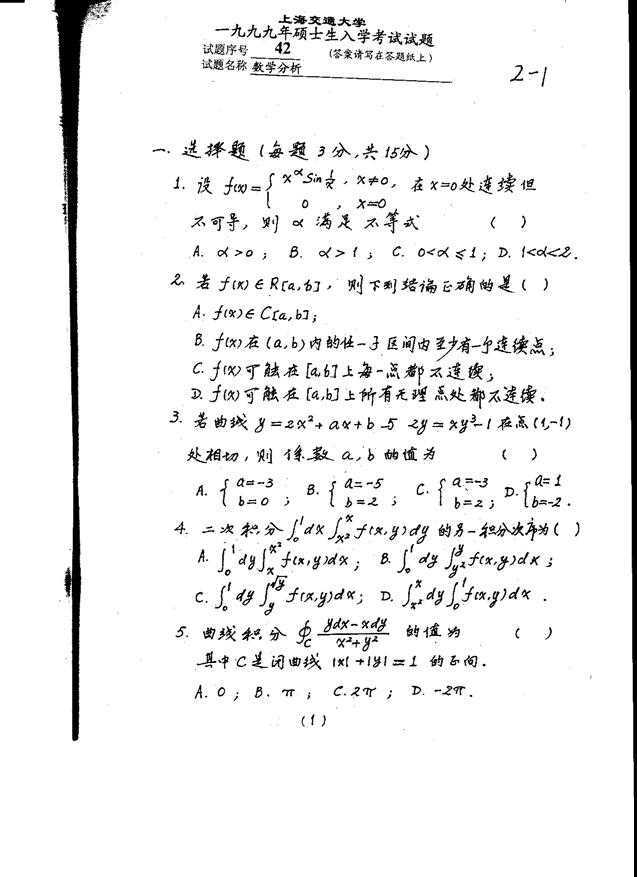 上海交通大学
一九九九年硕士生入学考试试题
试题序号 42 (答案请写在答题纸上)
试题名称 数学分析
2-1
一. 选择题 (每题 3 分, 共 15分)
1. 设 f(x) = { x^α Sin 1/x , x≠0, 在 x=0 处连续但
0 , x=0
不可导, 则 α 满足 不等式 ( )
A. α>0 ; B. α>1 ; C. 0<α≤1 ; D. 1<α<2.
2. 若 f(x)∈R[a,b], 则下列结论正确的是 ( )
A. f(x)∈C[a,b];
B. f(x) 在 (a,b) 内的任一子区间内至少有一个连续点;
C. f(x) 可能在 [a,b] 上每一点都不连续;
D. f(x) 可能在 [a,b] 上所有无理点处都不连续.
3. 若曲线 y = 2x²+ax+b 与 2y = xy³-1 在点 (1,-1)
处相切, 则 系数 a, b 的值为 ( )
A. { a=-3 b=0 ; B. { a=-5 b=2 ; C. { a=-3 b=2 ; D. { a=1 b=-2.
4. 二次积分 ∫₀¹dx∫_{x²}^{x} f(x,y)dy 的另一积分次序为 ( )
A. ∫₀¹dy∫_{x}^{x²} f(x,y)dx ; B. ∫₀¹dy∫_{y²}^{y} f(x,y)dx ;
C. ∫₀¹dy∫_{y}^{√y} f(x,y)dx; D. ∫_{x²}^{x}dy∫₀¹f(x,y)dx .
5. 曲线积分 ∮_C (ydx-xdy)/(x²+y²) 的值为 ( )
其中 C 是闭曲线 |x|+|y|=1 的正向.
A. 0 ; B. π ; C. 2π ; D. -2π.
(1)